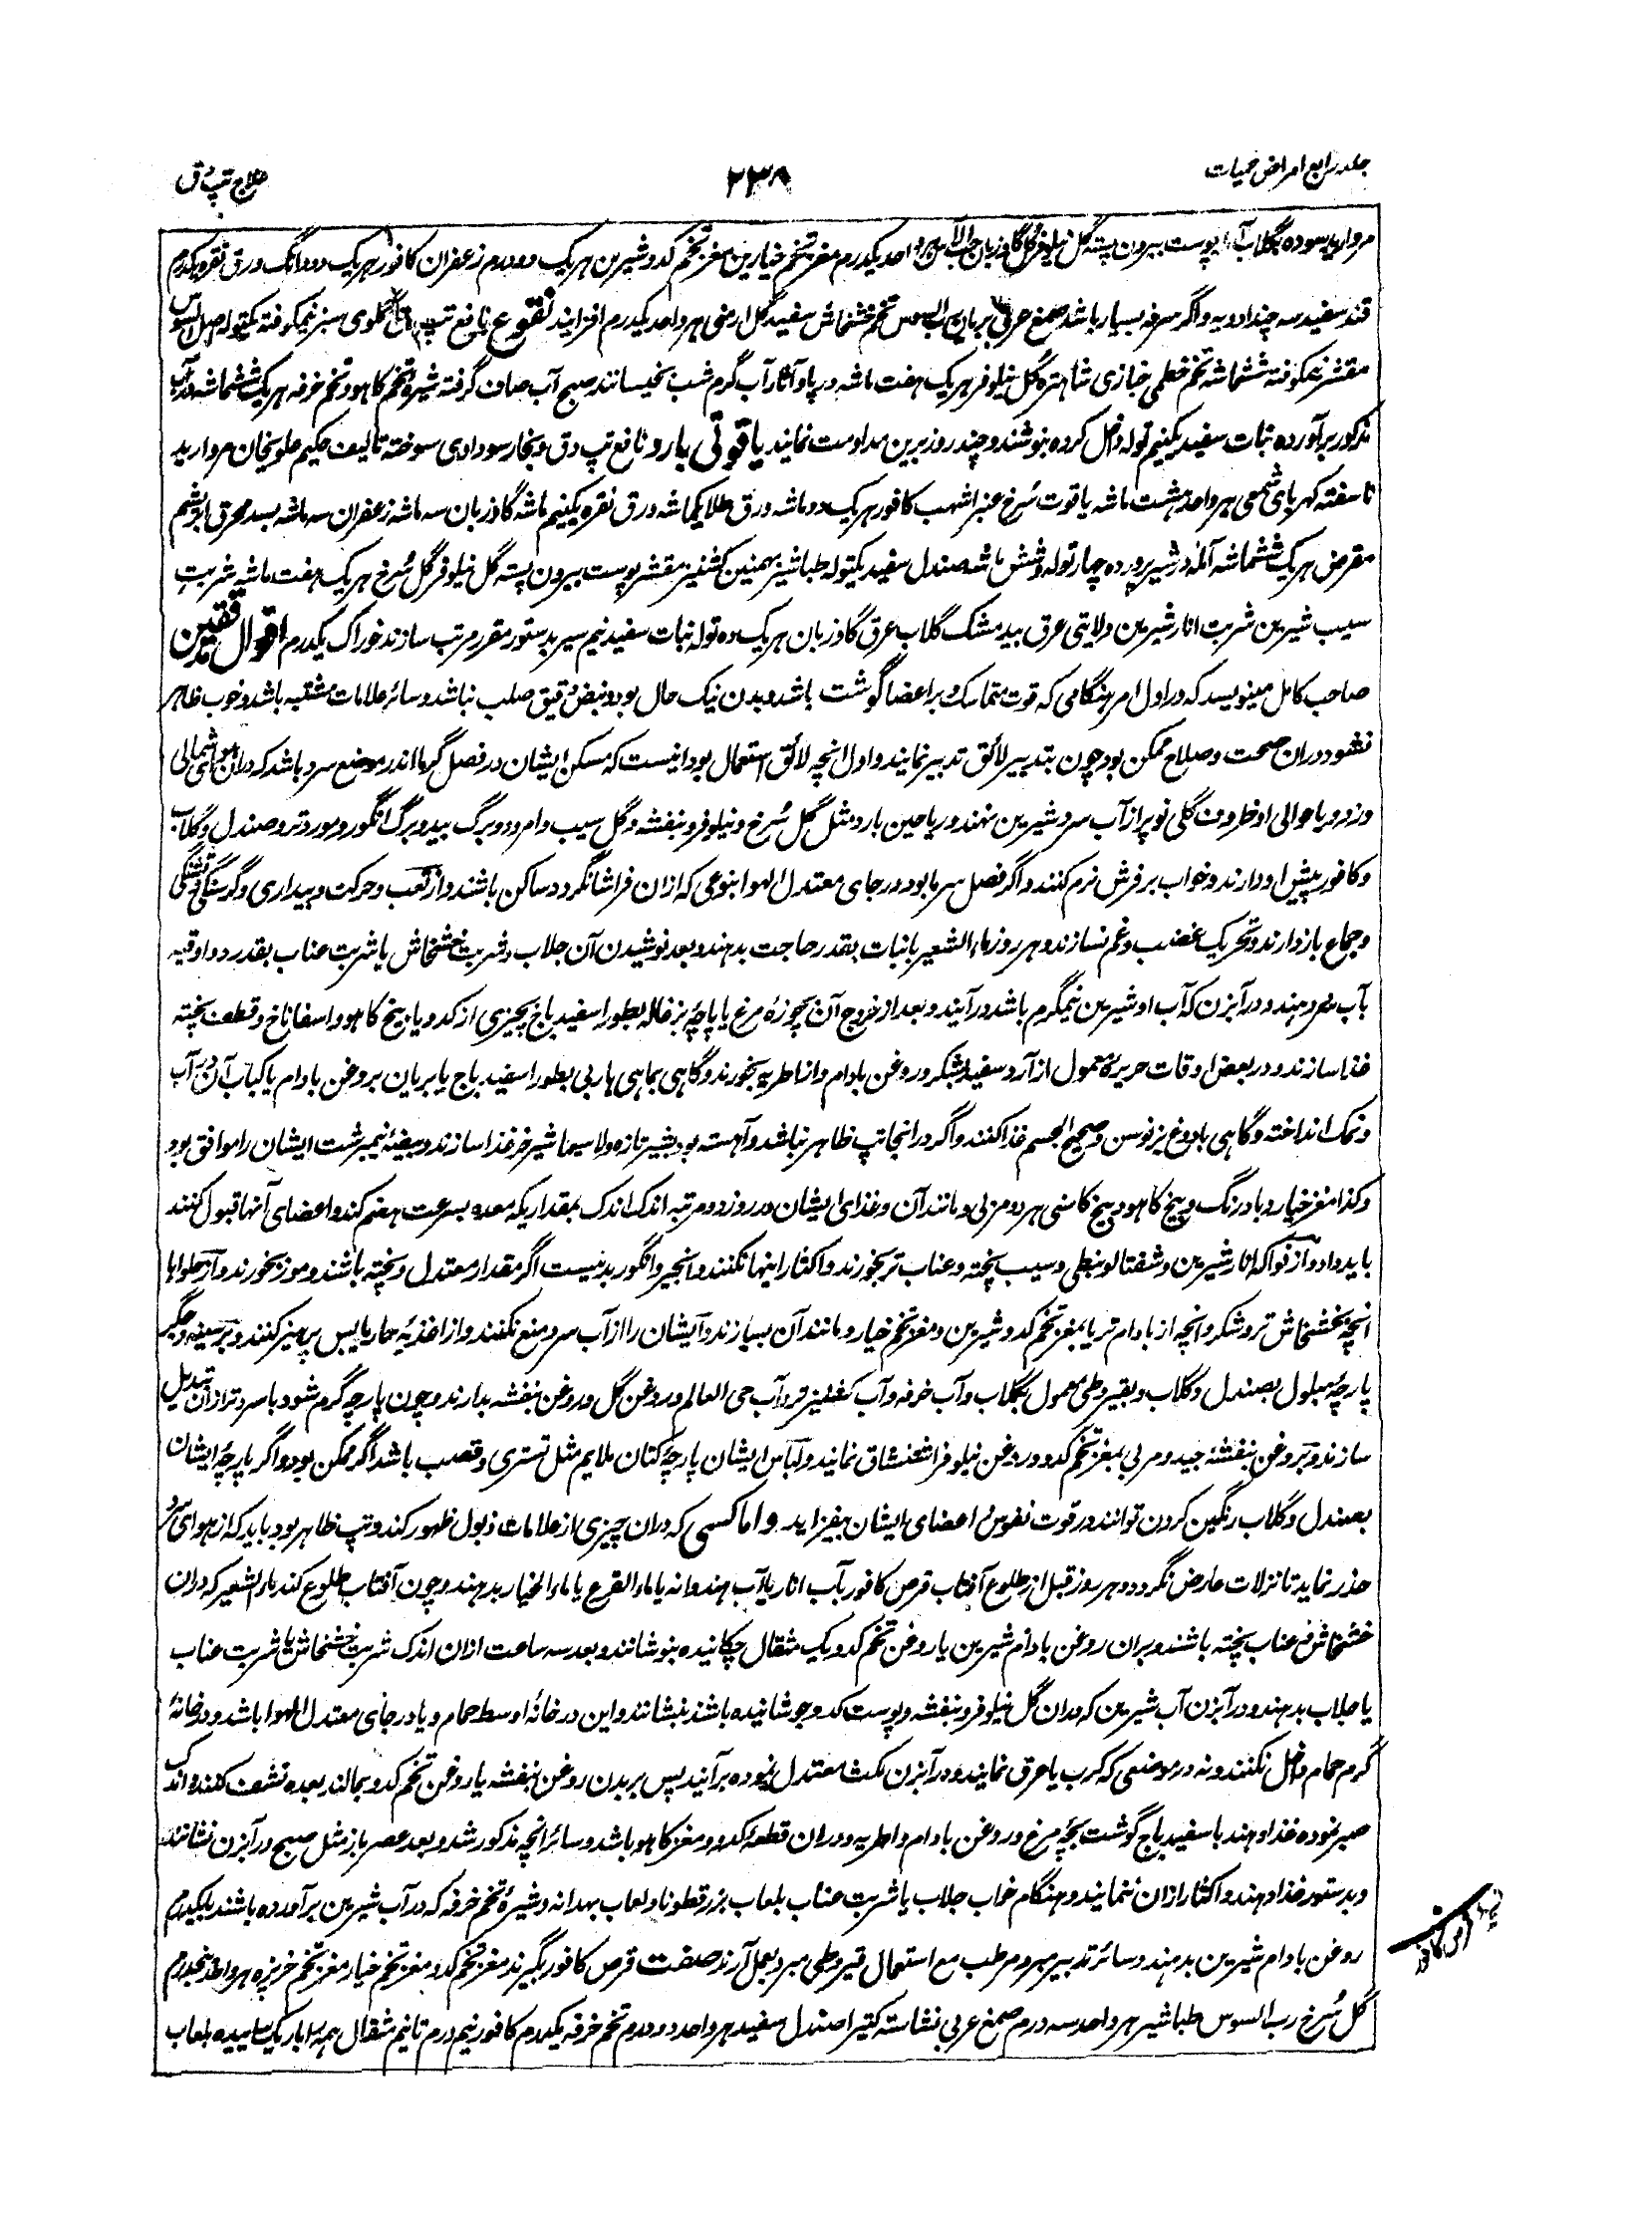 جلد رابع امراض حمیات
۲۳۸
علاج تپ دق
مروارید سوده بگلاب پوست بیرون پسته گل نیلوفر گل گاوزبان حب الآس هر واحد یکدرم مغز تخم خیارین مغز تخم کدو شیرین هر یک دو درم زعفران کافور هر یک دو دانگ ورق نقره یکدرم
قند سفید سه چند ادویه و اگر سرفه بسیار باشد صمغ عربی بریان رب السوس تخم خشخاش سفید گل ارمنی هر واحد یکدرم افزایند نقوع نافع تپ دق گلوی سبز نیمکوفته یکتوله اصل السوس
مقشر نیمکوفته ششماشه تخم خطمی خبازی شاهتره گل نیلوفر هر یک هفت ماشه در پاو آثار آب گرم شب بخیسانند صبح آب صاف گرفته شیره تخم کاهو و تخم خرفه هر یک ششماشه در آب
مذکور برآورده نبات سفید یکنیم توله داخل کرده بنوشند و چند روز برین مداومت نمایند یاقوتی بارد نافع تپ دق و بخار سوداوی سوخته تالیف حکیم علویخان مروارید
ناسفته کهربای شمعی هر واحد هشت ماشه یاقوت سرخ عنبر اشهب کافور هر یک دو ماشه ورق طلا یکماشه ورق نقره یکنیم ماشه گاوزبان سه ماشه زعفران سه ماشه بسد محرق ابریشم
مقرض هر یک ششماشه آمله در شیر پرورده چهار توله و شش ماشه صندل سفید یکتوله طباشیر بهمنین کشنیز مقشر پوست بیرون پسته گل نیلوفر گل سرخ هر یک هفت ماشه شربت
سیب شیرین شربت انار شیرین ولایتی عرق بید مشک گلاب عرق گاوزبان هر یک ده توله نبات سفید نیم سیر بدستور مقرر مرتب سازند خوراک یکدرم اقوال متقدمین
صاحب کامل مینویسد که در اول امر هنگامی که قوت متماسک و بر اعضا گوشت باشد و بدن نیک حال بود و نبض دقیق صلب نباشد و سائر علامات مشتبه باشد و خوب ظاهر
نشود دران صحت و صلاح ممکن بود چون بتدبیر لائق تدبیر نمایند و اول انچه لائق استعمال بود اینست که مسکن ایشان در فصل گرما اندر موضع سرد باشد که دران هوای شمالی
وزد و یا حوالی او ظروف گلی نو پر از آب سرد شیرین نهند و ریاحین بارد مثل گل سرخ و نیلوفر و بنفشه و گل سیب و امرود و برگ بید و برگ انگور و مورد تر و صندل و گلاب
و کافور پیش او دارند و خواب بر فرش نرم کنند و اگر فصل سرما بود در جای معتدل الهوا بنوعی که ازان فراشا نگردد ساکن باشند و از تعب و حرکت و بیداری و گرسنگی و تشنگی
و جماع باز دارند و تحریک غضب و غم نسازند و هر روز ماء الشعیر با نبات بقدر حاجت بدهند و بعد نوشیدن آن جلاب و شربت خشخاش یا شربت عناب بقدر دو اوقیه
بآب سرد دهند و در آبزن که آب او شیرین نیمگرم باشد درآیند و بعد از خروج آن بچوزه مرغ یا پاچه بزغاله بطور اسفیدباج بچیزی از کدو یا بیخ کاهو و اسفاناخ و قطف پخته
غذا سازند و در بعض اوقات حریره معمول از آرد سفید بشکر و روغن بادام و از اطریه بخورند و گاهی بماهی هازبی بطور اسفیدباج یا بریان بروغن بادام یا کباب آن و بر آب
و نمک انداخته و گاهی بادوغ بز نوسن و صحیح الجسم غذا کنند و اگر در انجا تپ ظاهر نباشد و آهسته بود بشیر تازه و لاسیما شیر خر غذا سازند و بیضه نیمبرشت ایشان را موافق بود
و کذا مغز خیار و بادرنگ و بیخ کاهو و بیخ کاسنی هر دو مزبی و مانند آن و غذای ایشان در روز دو مرتبه اندک اندک بمقداریکه معده بسرعت هضم کند و اعضای آنها قبول کنند
باید داد و از فواکه انار شیرین و شفتالو نبطی و سیب پخته و عناب تر بخورند و اکثار اینها نکنند و انجیر و انگور بد نیست اگر مقدار معتدل و پخته باشند و موز بخورند و از حلواها
انچه بخشخاش تر و شکر و انچه از بادام تر یا بمغز تخم کدو شیرین و مغز تخم خیار و مانند آن بسازند و ایشان را از آب سرد منع نکنند و از اغذیه حار یابس پرهیز کنند و بر سینه و جگر
پارچه مبلول بصندل و گلاب و بقیروطی معمول بگلاب و آب خرفه و آب کشنیز تر و آب حی العالم و روغن گل و روغن بنفشه بدارند و چون پارچه گرم شود با سردتر ازان تبدیل
سازند و بروغن بنفشه جید و مربی بمغز تخم کدو و روغن نیلوفر استنشاق نمایند و لباس ایشان پارچه کتان ملایم مثل تستری و قصب باشد اگر ممکن بود و اگر پارچه ایشان
بصندل و گلاب رنگین کردن توانند در قوت نفوس اعضای ایشان بیفزاید و اما کسی که دران چیزی از علامات ذبول ظهور کند و تپ ظاهر بود باید که از هوای سرد
حذر نماید تا نزلات عارض نگردد و هر روز قبل از طلوع آفتاب قرص کافور بآب انار یا آب هندوانه یا ماء القرع یا ماء الخیار بدهند و چون آفتاب طلوع کند ماء الشعیر که دران
خشخاش و عناب پخته باشند و بران روغن بادام شیرین یا روغن تخم کدو یک مثقال چکانیده بنوشانند و بعد سه ساعت ازان اندک شربت خشخاش یا شربت عناب
یا جلاب بدهند و در آبزن آب شیرین که دران گل نیلوفر و بنفشه و پوست کدو جوشانیده باشند بنشانند و این در خانه اوسط حمام و یا در جای معتدل الهوا باشد و در خانه
گرم حمام داخل نکنند و نه در موضعی که کرب یا عرق نمایند و در آبزن مکث معتدل نموده برآیند پس بر بدن روغن بنفشه یا روغن تخم کدو بمالند بعده نشف کنند و اندک
صبر نموده غذا دهند با سفیدباج گوشت بچه مرغ و روغن بادام و اطریه و دران قطعه کدو و مغز کاهو باشد و سائر انچه مذکور شد و بعد عصر باز مثل صبح در آبزن نشانند
و بدستور غذا دهند و اکثار ازان ننمایند و هنگام خواب جلاب یا شربت عناب بلعاب بزرقطونا و لعاب بهدانه و شیره تخم خرفه که در آب شیرین برآورده باشند بیکدرم
روغن بادام شیرین بدهند و سائر تدبیر مبرد مرطب مع استعمال قیروطی مبرد بعمل آرند صفت قرص کافور بگیرند مغز تخم کدو مغز تخم خیار مغز تخم خربزه هر واحد پنجدرم
گل سرخ رب السوس طباشیر هر واحد سه درم صمغ عربی نشاسته کتیرا صندل سفید هر واحد دو درم تخم خرفه یکدرم کافور نیم درم تا نیم مثقال همه را باریک ساییده بلعاب
قرص کافور